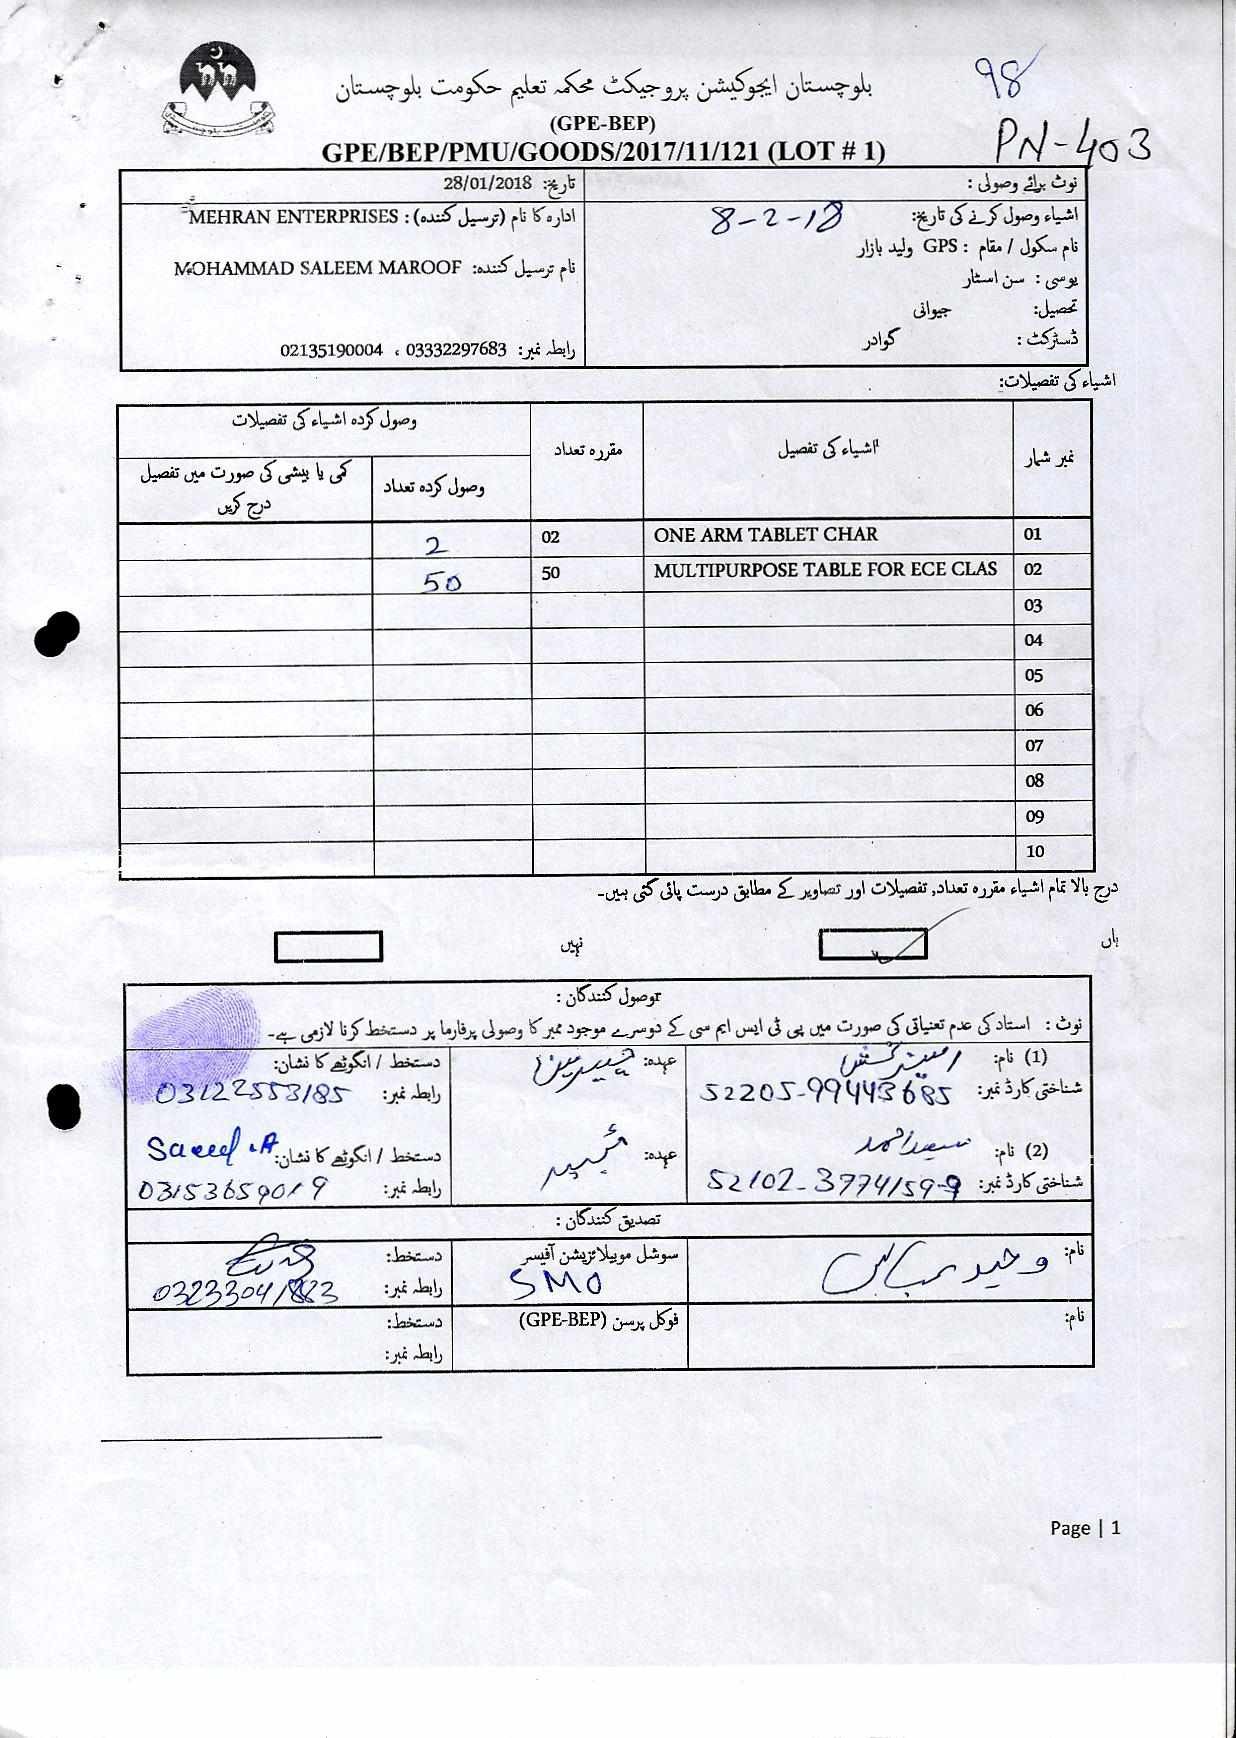 98
PN-403
بلوچستان ایجوکیشن پروجیکٹ محکمہ تعلیم حکومت بلوچستان
(GPE-BEP)
GPE/BEP/PMU/GOODS/2017/11/121 (LOT # 1)
نوٹ برائے وصولی :
تاریخ: 28/01/2018
اشیاء وصول کرنے کی تاریخ: 8-2-18
نام سکول / مقام : GPS ولید بازار
یو سی : سن اسٹار
تحصیل: جیوانی
ڈسٹرکٹ : گوادر
ادارہ کا نام (ترسیل کنندہ) : MEHRAN ENTERPRISES
نام ترسیل کنندہ: MOHAMMAD SALEEM MAROOF
رابطہ نمبر: 03332297683 ، 02135190004
اشیاء کی تفصیلات:
نمبر شمار اشیاء کی تفصیل مقررہ تعداد وصول کردہ اشیاء کی تفصیلات
وصول کردہ تعداد کمی یا بیشی کی صورت میں تفصیل درج کریں
01 ONE ARM TABLET CHAR 02 2
02 MULTIPURPOSE TABLE FOR ECE CLAS 50 50
03
04
05
06
07
08
09
10
درج بالا تمام اشیاء مقررہ تعداد, تفصیلات اور تصاویر کے مطابق درست پائی گئی ہیں۔
ہاں نہیں
وصول کنندگان :
نوٹ : استاد کی عدم تعیناتی کی صورت میں پی ٹی ایس ایم سی کے دوسرے موجود ممبر کا وصولی پرفارما پر دستخط کرنا لازمی ہے۔
(1) نام: عہدہ: چیئرمین دستخط / انگوٹھے کا نشان:
شناختی کارڈ نمبر: 52205-99443685 رابطہ نمبر: 03122553185
(2) نام: سعید احمد عہدہ: دستخط / انگوٹھے کا نشان: Saeed .A
شناختی کارڈ نمبر: 52102-3774159-9 رابطہ نمبر: 03153659019
تصدیق کنندگان :
نام: سوشل موبیلائزیشن آفیسر دستخط:
SMO رابطہ نمبر:
نام: فوکل پرسن (GPE-BEP) دستخط:
رابطہ نمبر:
Page | 1